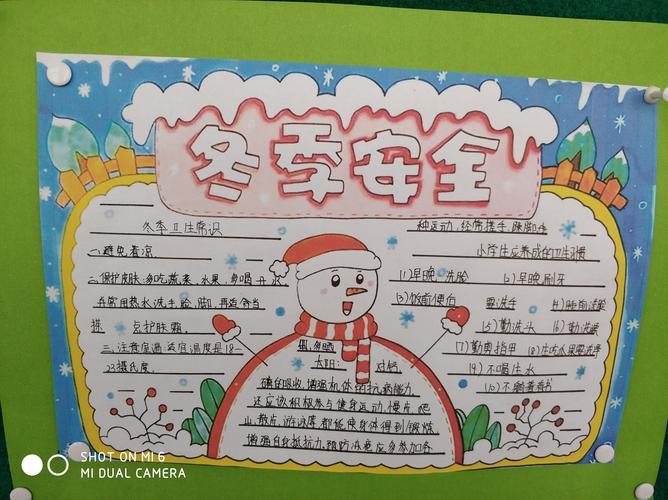 冬季安全
冬季卫生常识
一、避免着凉.
二、保护皮肤:多吃蔬菜、水果,多喝开水
并常用热水洗手、脸、脚,再适当
搽 护肤霜.
三、注意室温:适宜温度是18-
23摄氏度.
太阳:对钙
磷的吸收,增强机体的抗病能力
还应该积极参与健身运动.慢片 爬
山、散片,游泳等都能使身体得到锻炼
增强自身抵抗力,预防冻疮应多参加各
种运动,经常搓手,跺脚等
小学生应养成的卫生习惯
(1)早晚 洗脸
2)早晚刷牙
(3)饭前便后 要洗手
4)睡前洗脚
(5)勤洗头
6)勤洗澡
(7)勤剪指甲
(8)生吃水果要洗净
(9)不喝生水
(10)不躺着看书
SHOT ON MI 6
MI DUAL CAMERA